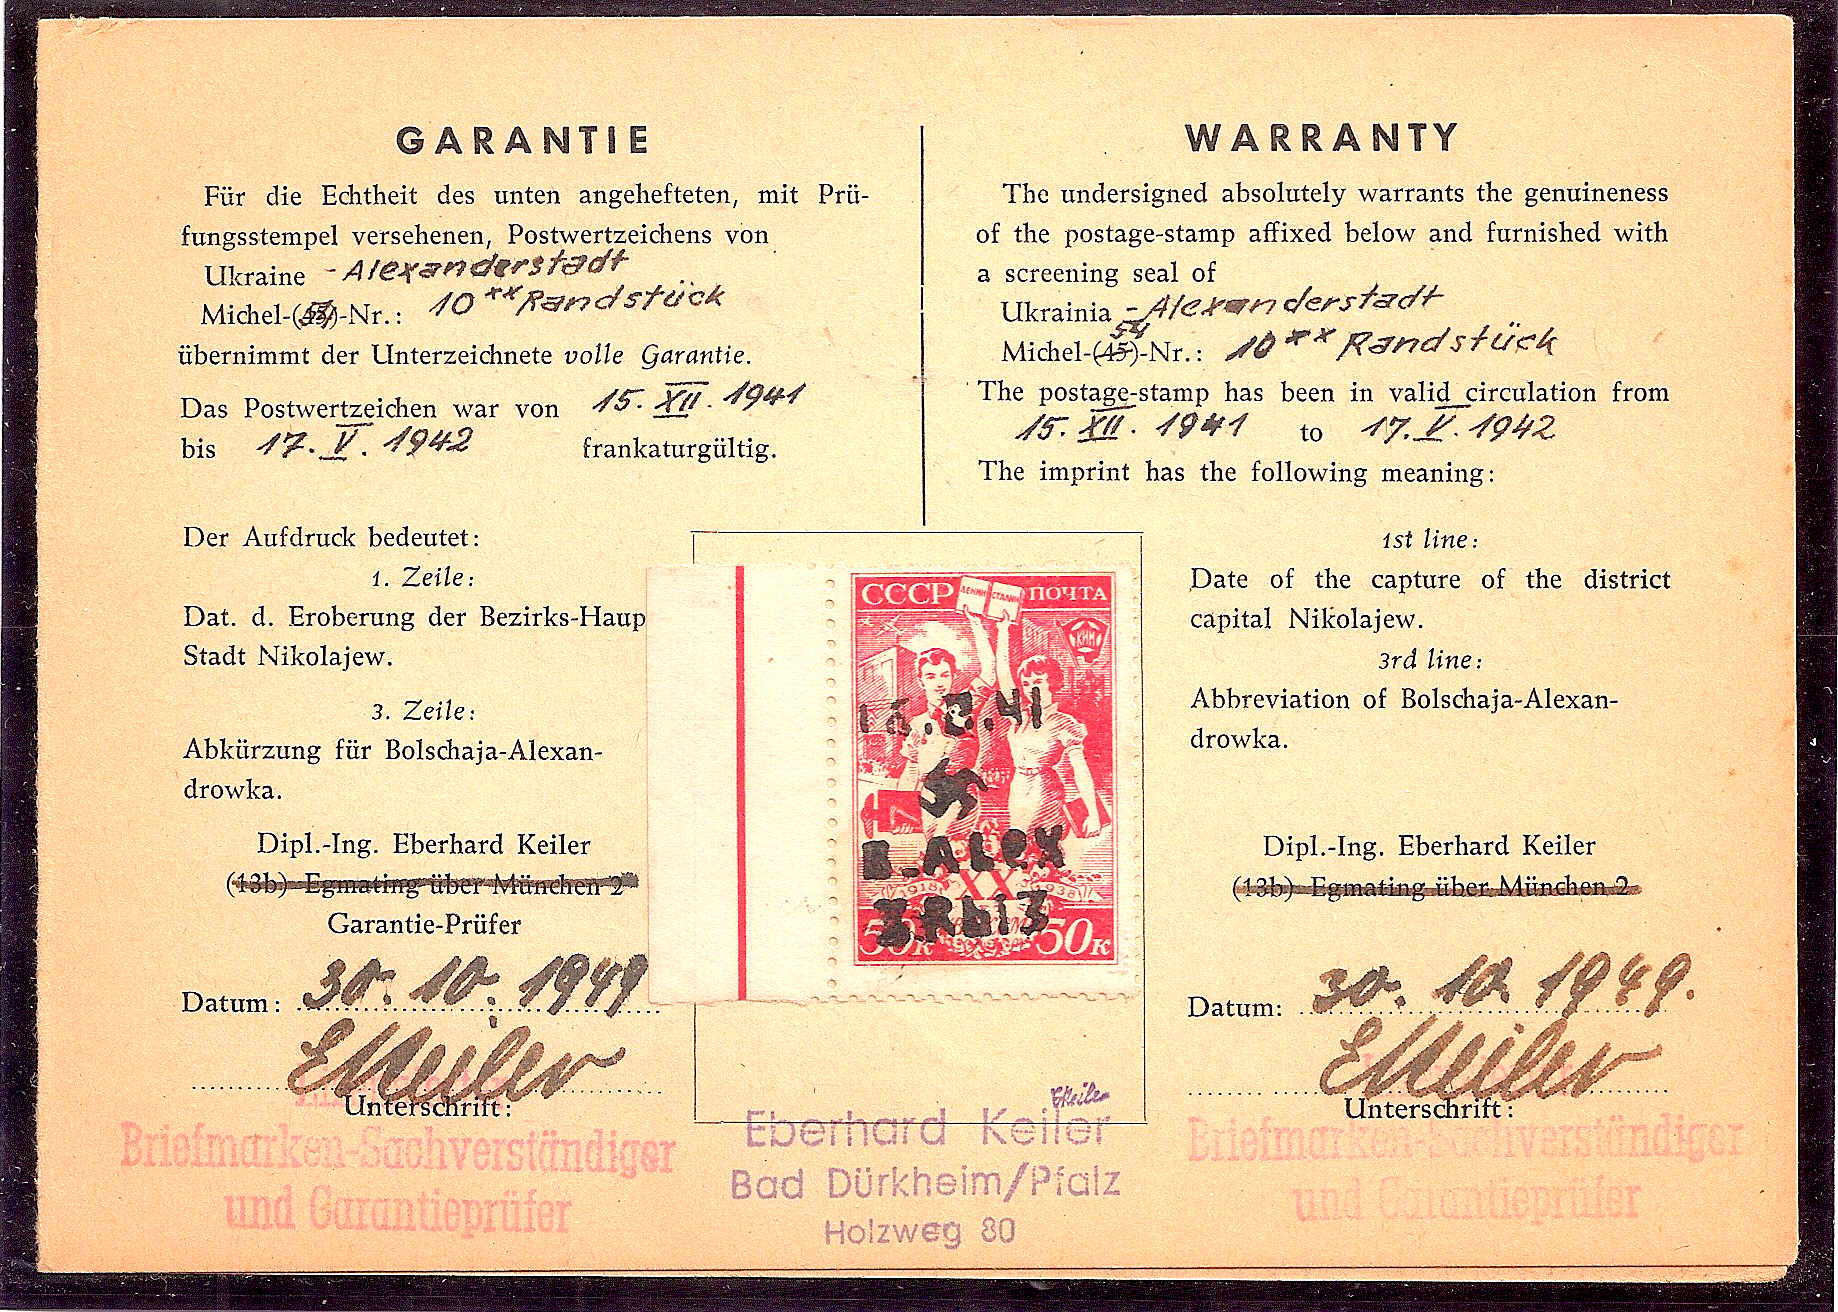 GARANTIE
Für die Echtheit des unten angehefteten, mit Prü-
fungsstempel versehenen, Postwertzeichens von
Ukraine - Alexanderstadt
Michel-(54)-Nr.: 10 ×× Randstück
übernimmt der Unterzeichnete volle Garantie.
Das Postwertzeichen war von 15. XII. 1941
bis 17. V. 1942 frankaturgültig.
Der Aufdruck bedeutet:
1. Zeile:
Dat. d. Eroberung der Bezirks-Haup
Stadt Nikolajew.
3. Zeile:
Abkürzung für Bolschaja-Alexan-
drowka.
Dipl.-Ing. Eberhard Keiler
(13b) Egmating über München 2
Garantie-Prüfer
Datum: 30. 10. 1949
EKeiler
Unterschrift:
Briefmarken-Sachverständiger
und Garantieprüfer
WARRANTY
The undersigned absolutely warrants the genuineness
of the postage-stamp affixed below and furnished with
a screening seal of
Ukrainia - Alexanderstadt
54
Michel-(45)-Nr.: 10 ×× Randstück
The postage-stamp has been in valid circulation from
15. XII. 1941 to 17. V. 1942
The imprint has the following meaning:
1st line:
Date of the capture of the district
capital Nikolajew.
3rd line:
Abbreviation of Bolschaja-Alexan-
drowka.
Dipl.-Ing. Eberhard Keiler
(13b) Egmating über München 2
Datum: 30. 10. 1949.
EKeiler
Unterschrift:
Briefmarken-Sachverständiger
und Garantieprüfer
СССР ЛЕНИН СТАЛИН ПОЧТА
КИМ
16.8.41
B_ALEX
1918 XX 1938
3.Rbl3
50К 50К
EKeiler
Eberhard Keiler
Bad Dürkheim/Pfalz
Holzweg 80